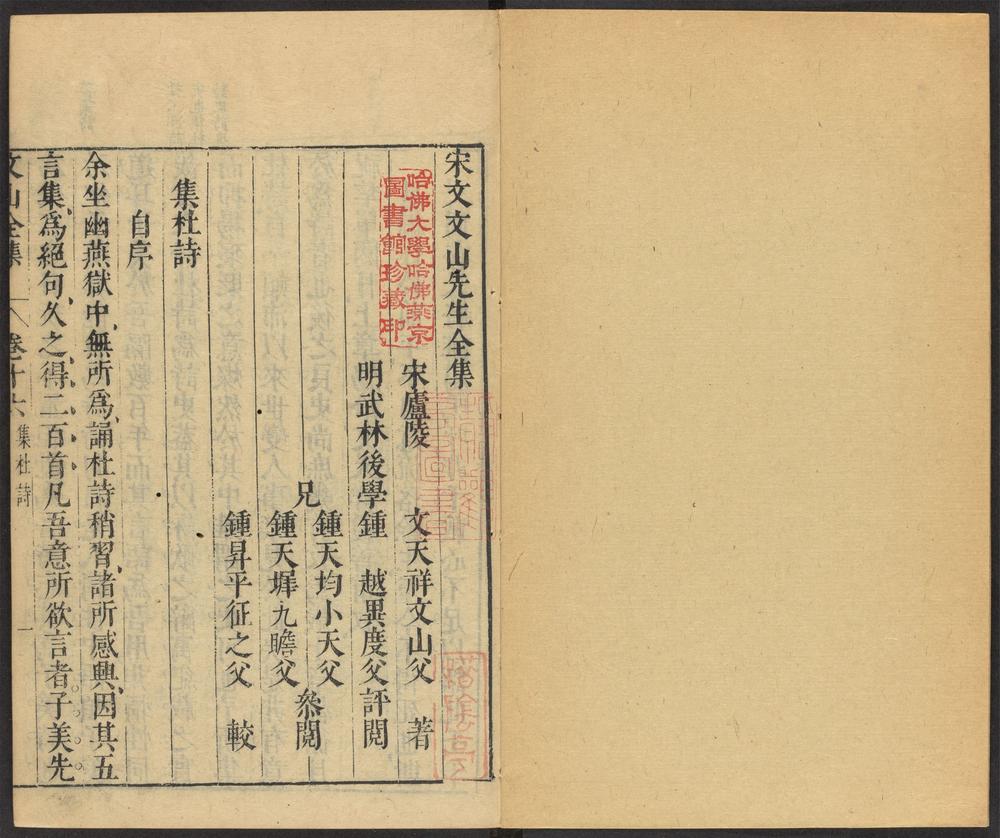 宋文文山先生全集
哈佛大學哈佛燕京
圖書館珍藏印
宋廬陵　文天祥文山父　著
明武林後學鍾　越異度父評閱
兄
鍾天均小天父
鍾天墀九瞻父
叅閱
鍾昇平征之父　較
集杜詩
自序
余坐幽燕獄中無所爲誦杜詩稍習諸所感興因其五
言集爲絕句久之得二百首凡吾意所欲言者子美先
文山全集　卷十六　集杜詩　一